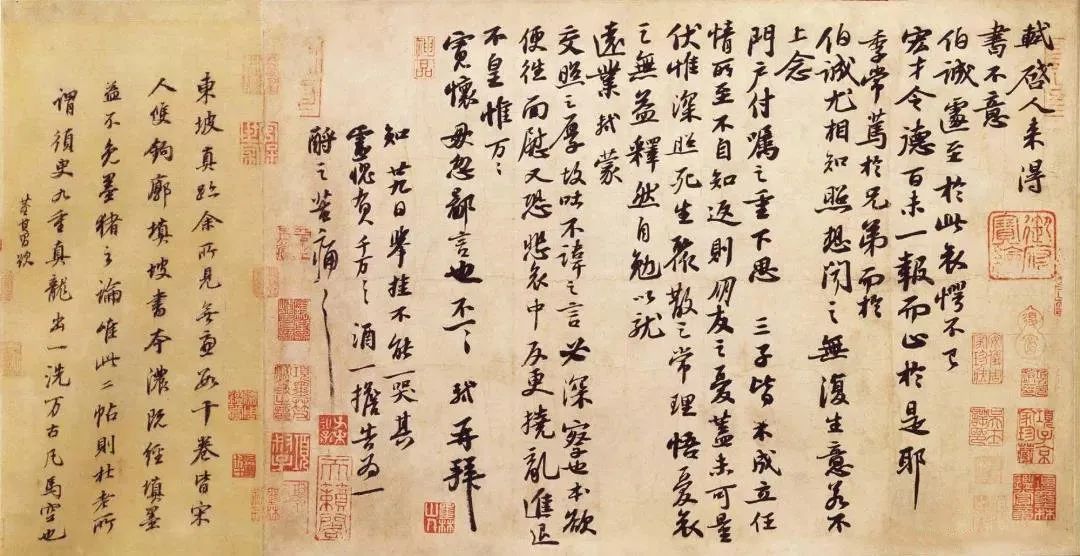 軾啓人来得
書不意
伯誠遽至於此哀愕不已
宏才令德百未一報而止於是耶
季常篤於兄弟而於
伯誠尤相知照想聞之無復生意若不
上念
門户付嘱之重下思三子皆不成立任
情所至不自知返則朋友之憂盖未可量
伏惟深照死生聚散之常理悟憂哀
之無益釋然自勉以就
遠業軾蒙
交照之厚故吐不諱之言必深察也本欲
便往面慰又恐悲哀中反更撓亂進退
不皇惟万々
寛懷毋忽鄙言也不一々軾再拜
知廿九日舉挂不能一哭其
靈愧負千万々酒一擔告為一
酹之苦痛々
神品
御府寶繪
項子京家珍藏
天籟閣
墨林山人
東坡真跡余所見無慮數十卷皆宋
人雙鉤廓填坡書本濃既經填墨
益不免墨豬之論唯此二帖則杜老所
謂須臾九重真龍出一洗万古凡馬空也
董其昌題